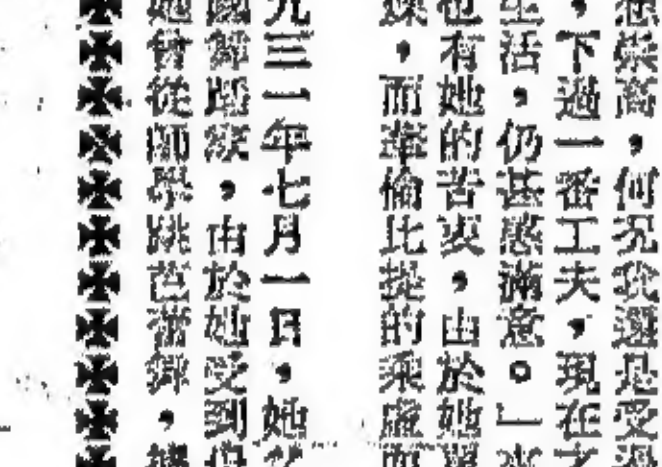 崇高，何況我還是受過
，下過一番工夫，現在才
生活，仍甚感滿意。」
也有她的苦衷，由於她單
，而華倫比提的乘虛而
九三一年七月一日，她
國舞蹈家，由於她受到
她曾從師學跳芭蕾舞，